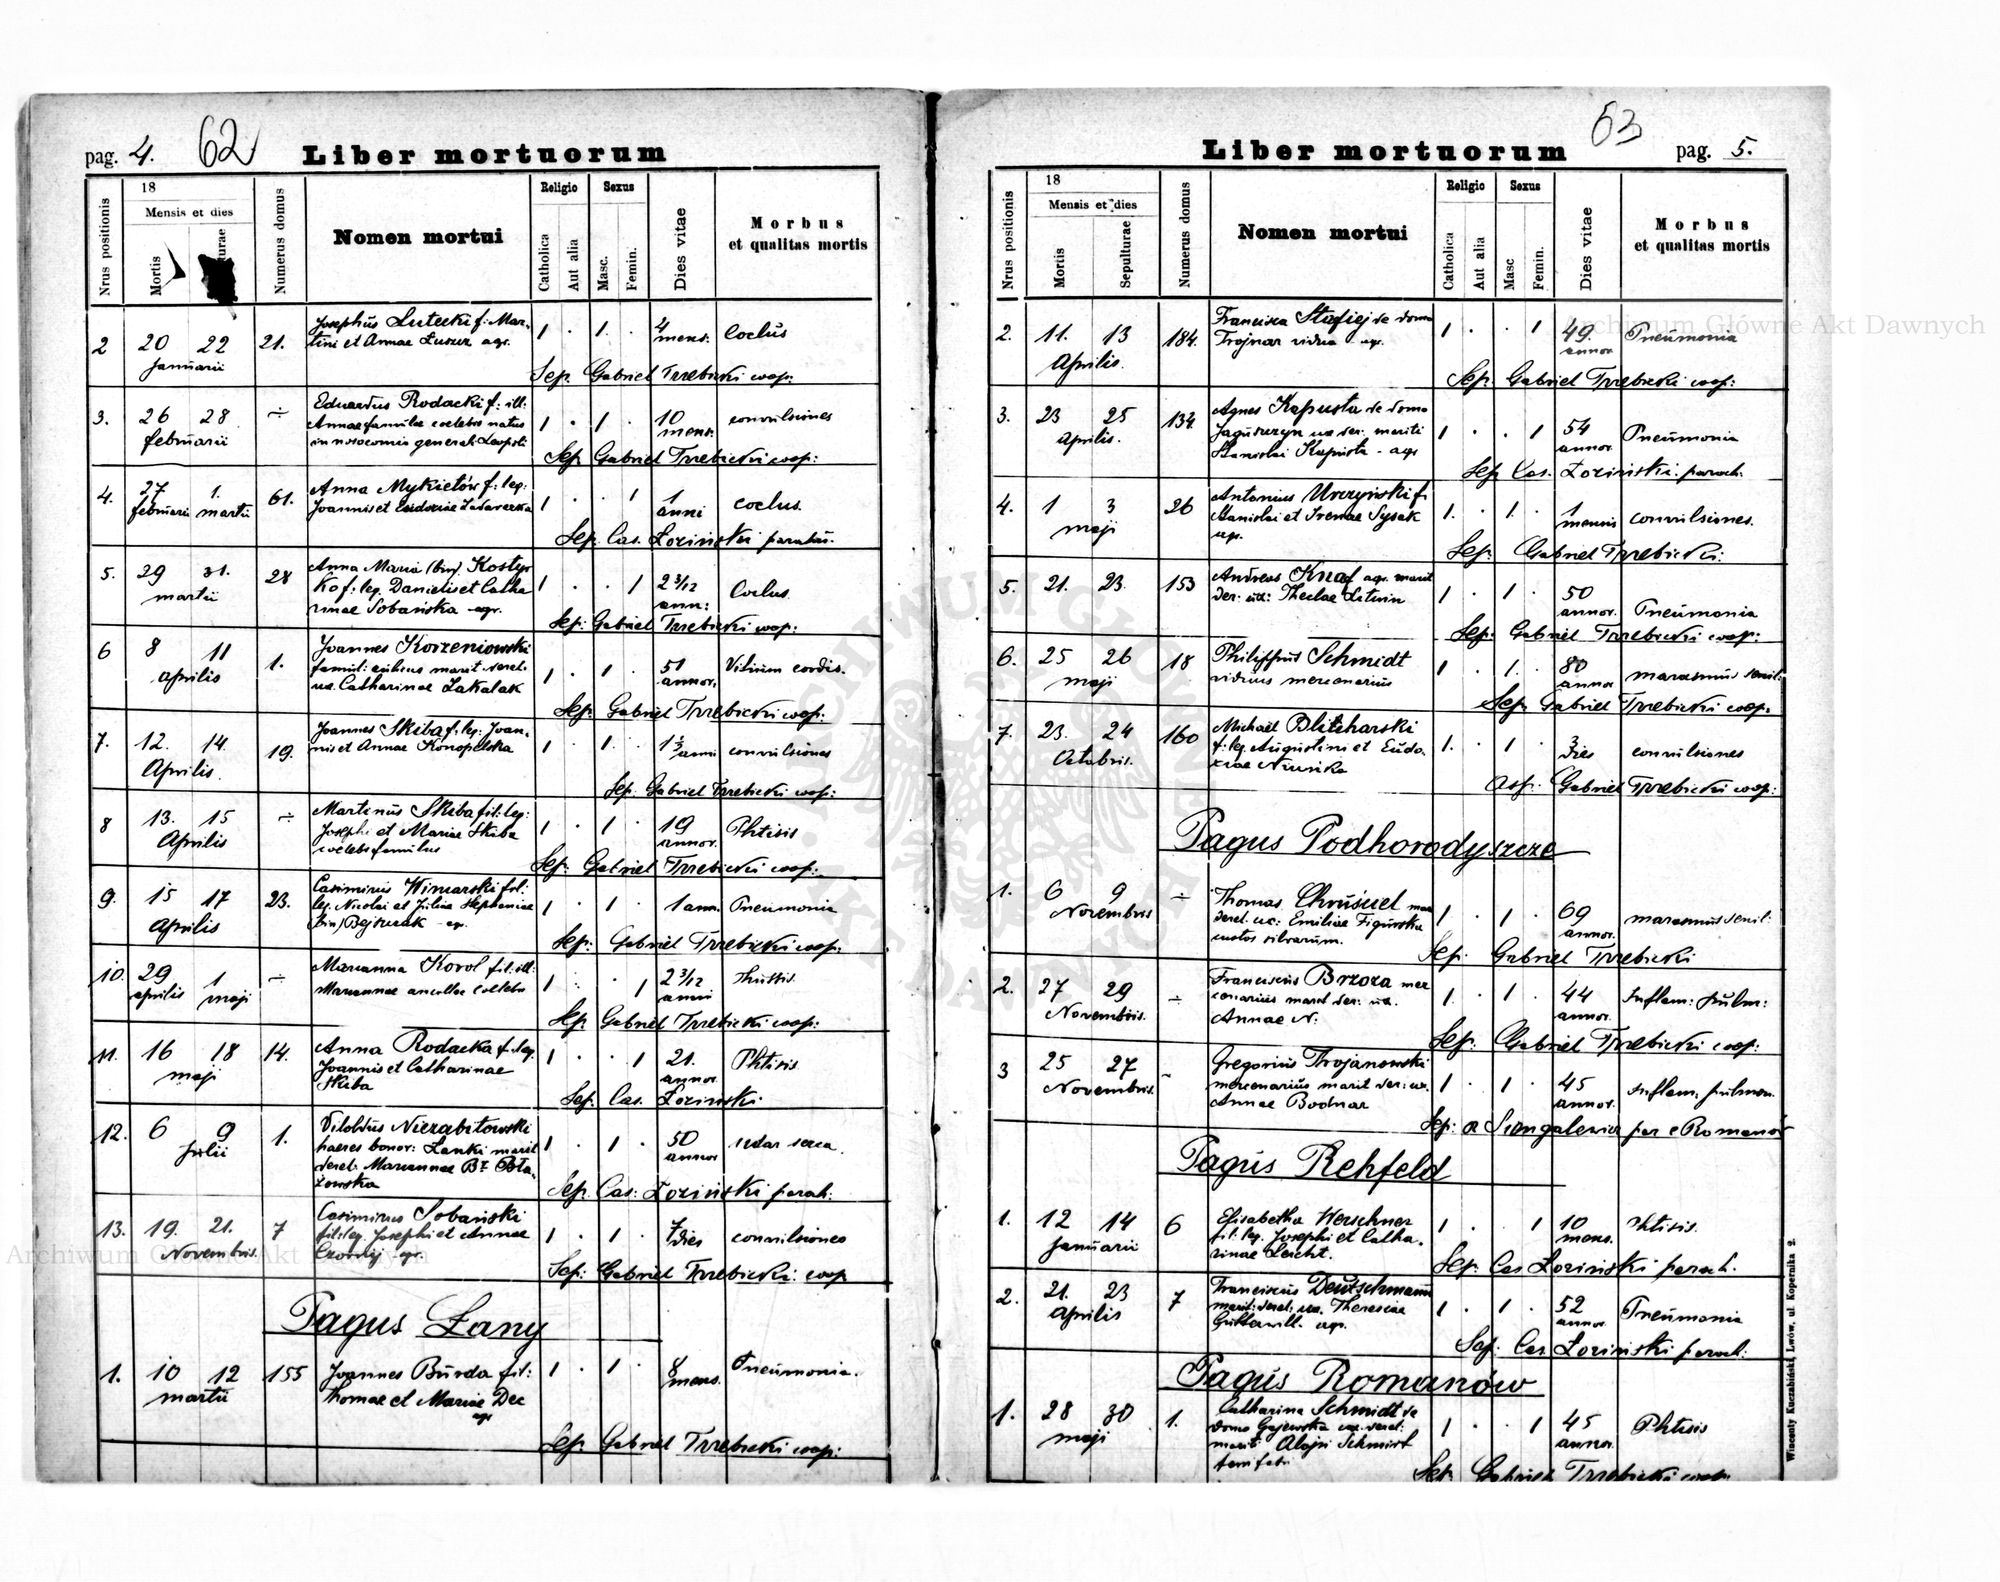 pag. 4. 62 Liber mortuorum
Nrus positionis
18
Mensis et dies
Mortis
Numerus domus
Nomen mortui
Religio
Catholica
Aut alia
Sexus
Masc.
Femin.
Dies vitae
Morbus
et qualitas mortis
2 20 22 21. Josephus Lutecki f: Mar- 1 . 1 . 4 Coclus
Januarii tini et Annae agr. mens.
Sep. Gabriel Trzebicki coop:
3. 26 28 ÷ Eduardus Rodacki f: ill: 1 . 1 . 10 convulsiones
februarii Annae famulae coelebis natus mens.
in nosocomio generali Leopoli
Sep. Gabriel Trzebicki coop:
4. 27 1. 61. Anna Mykietów f: leg: 1 . . 1 1 coclus.
februarii martii Joannis et anni
Sep. Cas. Łoziński paroch.
5. 29 31. 28 Anna Maria (bin) Kostyr 1 . . 1 2 3/12 Coclus.
martii ko f: leg. Danielis et Catha ann:
rinae Sobańska agr.
Sep: Gabriel Trzebicki coop:
6 8 11 1. Joannes Korzeniowski 1 . 1 . 51 Vitium cordis.
aprilis marit. derel. annor.
ux. Catharinae Zakalak
Sep: Gabriel Trzebicki coop:
7. 12. 14. 19. Joannes Skiba f. leg: Joan- 1 . 1 . convulsiones
Aprilis. nis et Annae Konopelska anni
Sep: Gabriel Trzebicki coop:
8 13. 15 ÷ Martinus Skiba fil: leg: 1 . 1 . 19 Phtisis
Aprilis Josephi et Mariae Skiba annor.
coelebs famulus
Sep: Gabriel Trzebicki coop:
9. 15 17 23. Casimirus Winiarski fil: 1 . 1 . 1 ann. Pneumonia
Aprilis leg. Nicolai et Julia Stephaniae
(bin) agr.
Sep: Gabriel Trzebicki coop:
10. 29 1 ÷ Marianna Korol fil: ill: 1 . . 1 2 3/12
aprilis maji Mariannae ancillae coelebis anni
Sep. Gabriel Trzebicki coop:
11. 16 18 14. Anna Rodacka f: leg. 1 . . 1 21. Phtisis.
maji Joannis et Catharinae annor.
Skiba
Sep: Cas. Łoziński
12. 6 9 1. Vitoldus Niezabitowski 1 . 1 . 50
Julii haeres bonor: Lanki marit annor
derel: Mariannae
Sep. Cas: Łoziński paroch:
13. 19. 21. 7 Casimirus Sobański 1 . 1 . 7 convulsiones
Novembris. fil: leg. Josephi et Annae dies
agr.
Sep: Gabriel Trzebicki: coop
Pagus Łany
1. 10 12 155 Joannes Burda fil: 1 . 1 . 8 Pneumonia.
martii Thomae et Mariae Dec mens.
agr
Sep. Gabriel Trzebicki coop:
Liber mortuorum 63 pag. 5.
Nrus positionis
18
Mensis et dies
Mortis
Sepulturae
Numerus domus
Nomen mortui
Religio
Catholica
Aut alia
Sexus
Masc
Femin.
Dies vitae
Morbus
et qualitas mortis
2. 11. 13 184. Francisca Stafiej de domo 1 . . 1 49. Pneumonia
Aprilis. Trojnar vidua agr. annor
Sep: Gabriel Trzebicki coop:
3. 23 25 134. Agnes Kapusta de domo 1 . . 1 54 Pneumonia
Aprilis. ux der: mariti annor.
Stanislai Kapusta - agr
Sep Cas. Łoziński: paroch:
4. 1 3 26 Antonius f. 1. . 1. . 1 convulsiones.
maji Stanislai et Irenae Sysak mensis
agr.
Sep: Gabriel Trzebicki:
5. 21. 23. 153 Andreas Knaf agr. marit 1 . 1 . 50 Pneumonia
der: Theclae Litwin annor.
Sep: Gabriel Trzebicki coop:
6. 25 26 18 Philippus Schmidt 1 . 1. . 80 marasmus senil:
maji viduus mercenarius annor
Sep Gabriel Trzebicki coop.
7. 23. 24 160 Michael Blicharski 1. . 1 . 3 convulsiones
Octobris. f: leg. Augustini et Eudo- dies
xiae
asp. Gabriel Trzebicki coop:
Pagus Podhorodyszcze
1. 6 9 ÷ Thomas 1 . 1 . 69 marasmus senil:
Novembris derel. ux: Emiliae Figurska annor.
custos silvarum.
Sep: Gabriel Trzebicki
2. 27 29 ÷ Franciscus Brzoza mer 1. . 1 . 44 Inflam: pulm:
Novembris. cenarius marit der: ux. annor.
Annae N:
Sep: Gabriel Trzebicki coop:
3 25 27 - Gregorius Trojanowski 1 . 1 . 45 inflam: pulmon.
Novembris. mercenarius marit der: ux. annor.
Annae Bodnar
Sep: a par e Romanów
Pagus Rehfeld
1. 12 14 6 Elisabetha Werschner 1 . . 1 10 Phtisis.
Januarii fil: leg. Josephi et Catha- mens.
rinae Leicht.
Sep. Cas Łoziński paroch.
2. 21. 23 7 Franciscus Deutschmann 1 . 1 . 52 Pneumonia
Aprilis marit: derel: ux. Theresiae annor.
agr.
Sep: Cas Łoziński paroch:
Pagus Romanów
1. 28 30 1. Catharina Schmidt de 1 . . 1 45 Phtisis
maji domo Gajewska ux. derel: annor.
marit: Aloisi Schmidt
Sep: Gabriel Trzebicki coop.
Wincenty Kuczabiński, Lwów, ul. Kopernika 2.
Archiwum Główne Akt Dawnych
Archiwum Główne Akt Dawnych
ARCHIWUM GŁÓWNE AKT DAWNYCH